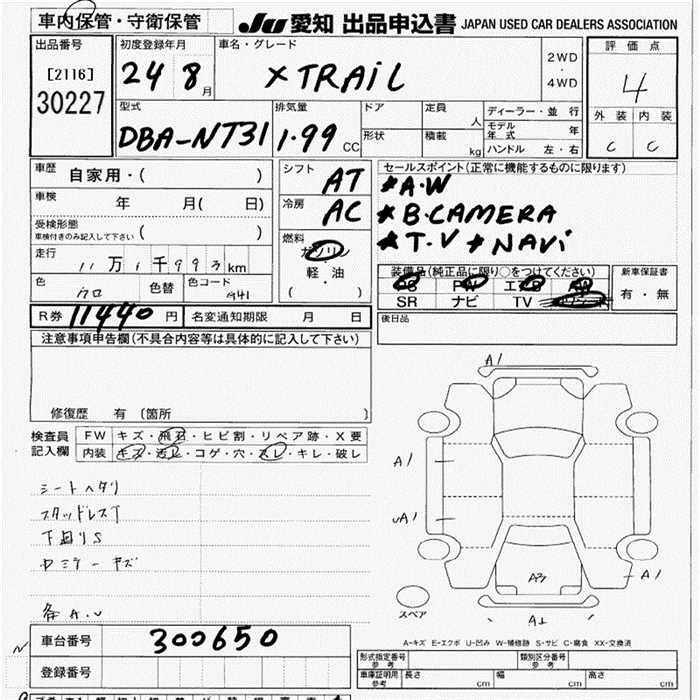 車内保管・守衛保管
JU 愛知 出品申込書 JAPAN USED CAR DEALERS ASSOCIATION
出品番号
[2116]
30227
初度登録年月
24 8 月
車名・グレード
X TRAIL
2WD
・
4WD
評価点
4
外装 内装
C C
型式
DBA-NT31
排気量
1.99 CC
ドア
形状
定員
人
積載
kg
ディーラー・並行
モデル年式 年
ハンドル 左・右
車歴
自家用・( )
車検 年 月( 日)
受検形態
車検付きのみ記入して下さい ( )
走行
11万1千993km
色 クロ 色替 色コード G41
シフト AT
冷房 AC
燃料
ガソリン
軽・油
( )
セールスポイント(正常に機能するものに限ります)
★A・W
★B・CAMERA
★T.V ★NAVi
装備品(純正品に限り○をつけてください)
PS PW エアB AW
SR ナビ TV
新車保証書
有・無
R券 11440 円 名変通知期限 月 日
後日品
注意事項申告欄(不具合内容等は具体的に記入して下さい)
修復歴 有 〔箇所 〕
検査員
記入欄
FW キズ・飛石・ヒビ割・リペア跡・X要
内装 キズ・汚レ・コゲ・穴・スレ・キレ・破レ
シートヘタリ
スタッドレスT
下回りS
キズ
各A.U
A1
A1
A1
A3
A1
スペア
A-キズ E-エクボ U-凹み W-補修跡 S-サビ C-腐食 XX-交換済
車台番号 300650
登録番号
形式指定番号
参考
類別区分番号
参考
車庫証明用
参考
長さ cm 幅 cm 高さ cm